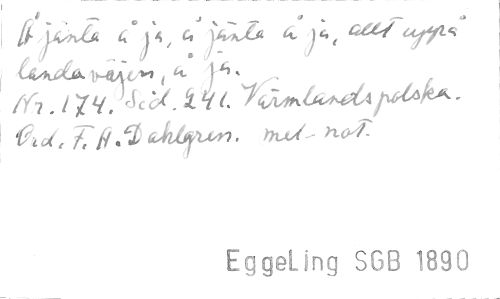 Å jänta å ja, å jänta å ja, allt uppå
landavägen, å ja.
Nr. 174. Sid. 241. Värmlandspolska.
Ord. F. A. Dahlgren. mel-not.
EggeLing SGB 1890